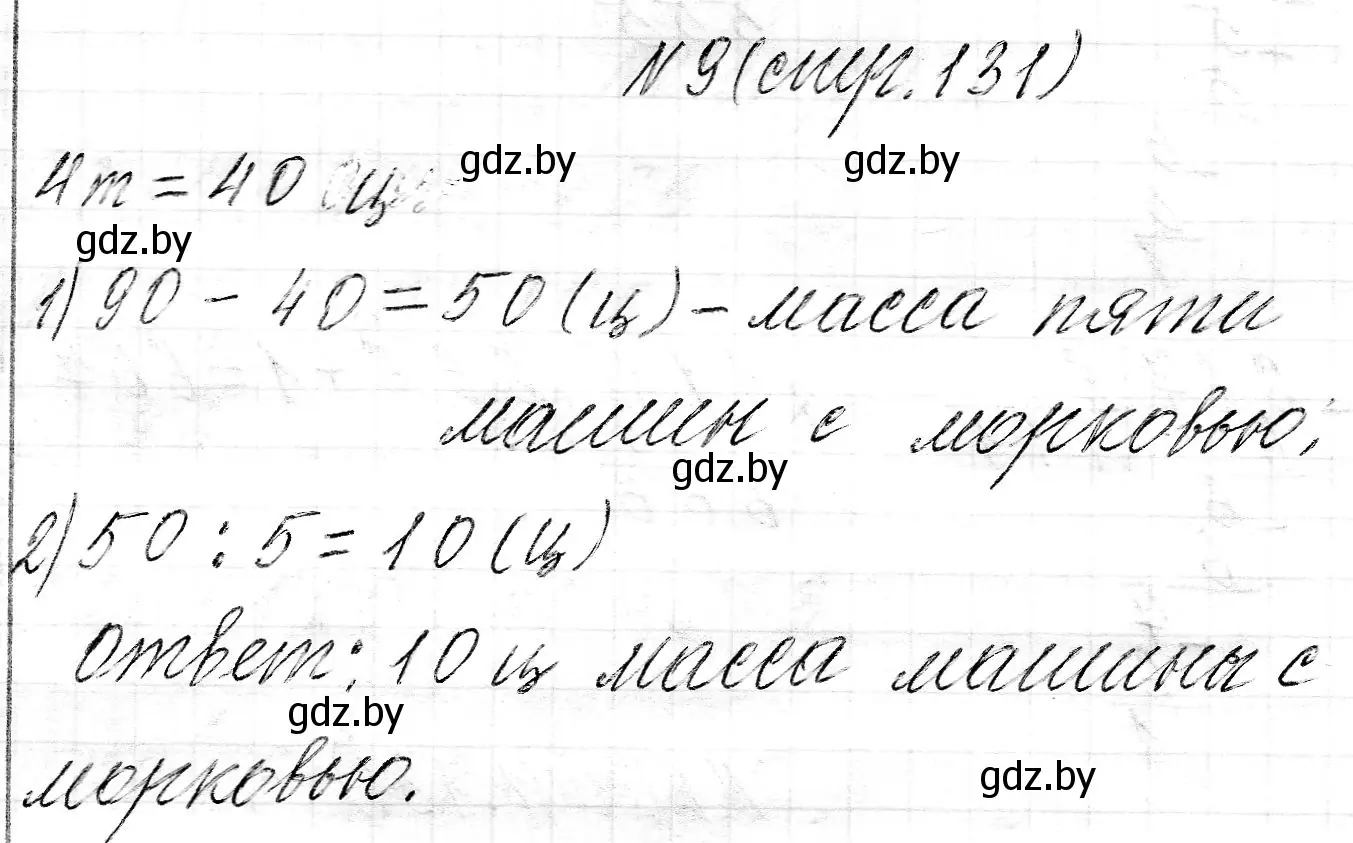 № 9 (стр. 131)
gdz.by gdz.by
4 т = 40 ц
gdz.by
1) 90 - 40 = 50 (ц) - масса пяти
машин с морковью;
gdz.by
2) 50 : 5 = 10 (ц)
Ответ: 10 ц масса машины с
gdz.by
морковью.
gdz.by